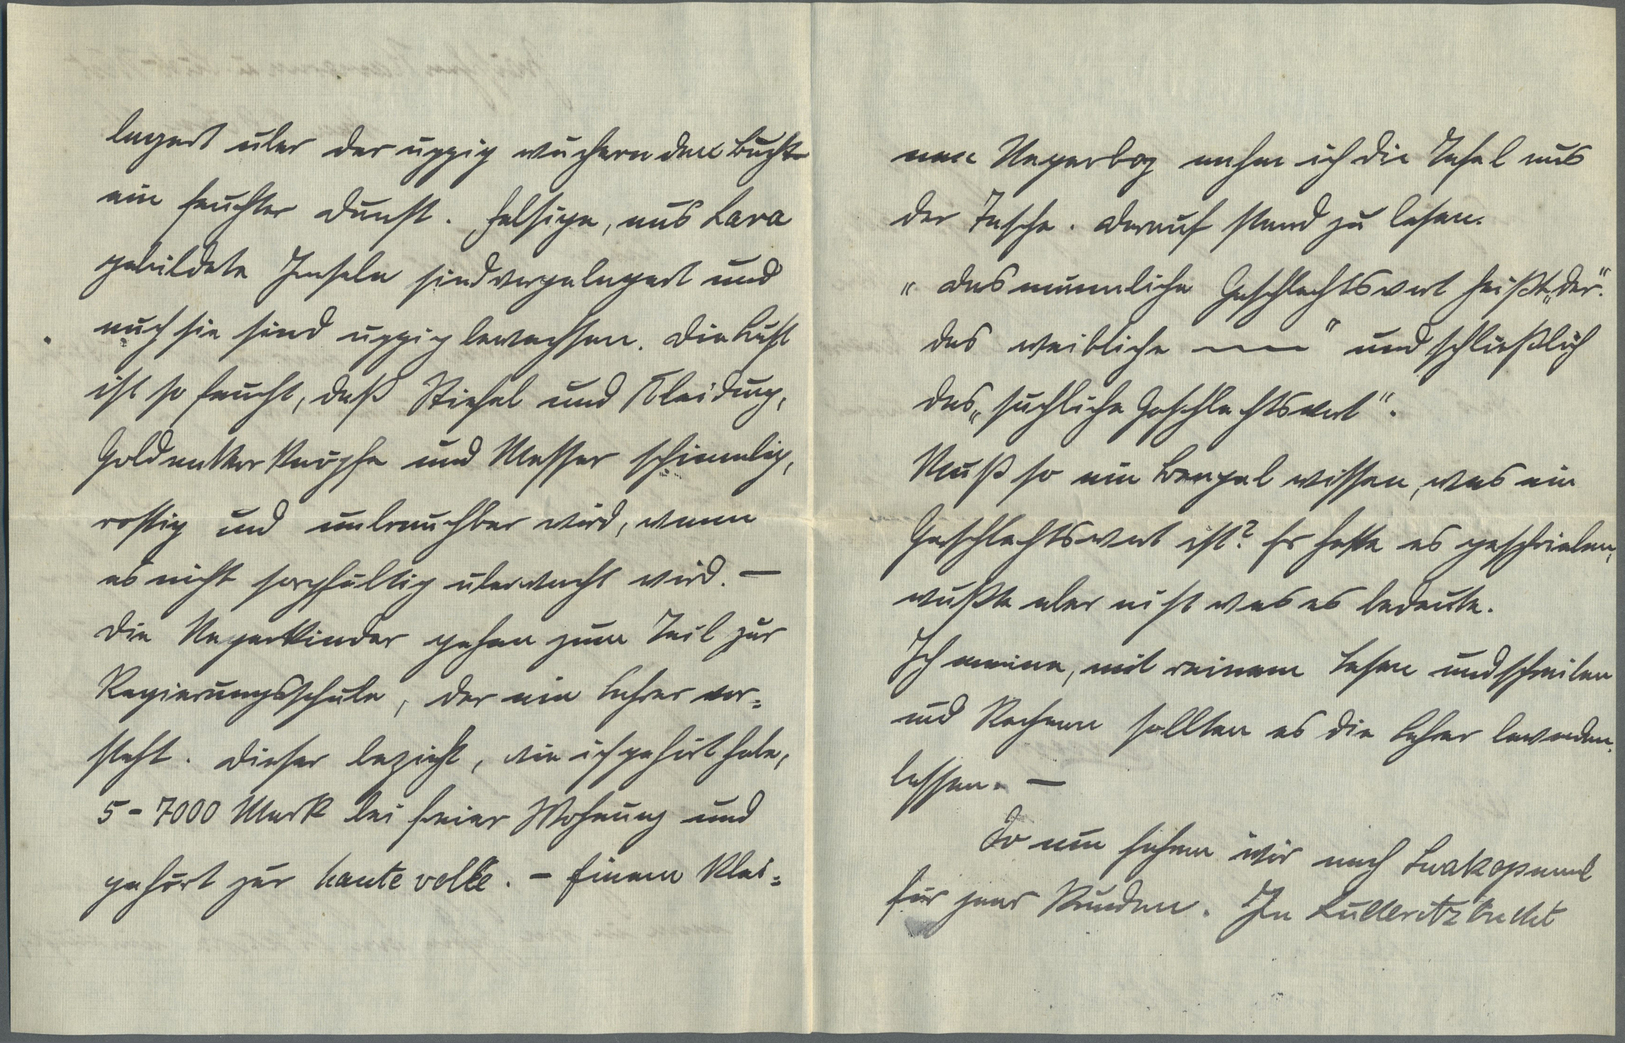 lagert über der üppig wuchernden Bucht
ein feuchter Dunst. Felsige, aus Lava
gebildete Inseln sind vorgelagert und
auch sie sind üppig bewachsen. Die Luft
ist so feucht, daß Stiefel und Kleidung,
Goldmanschettenknöpfe und Messer schimmelig,
rostig und unbrauchbar wird, wenn
es nicht sorgfältig überwacht wird. —
Die Negerkinder gehen zum Teil zur
Regierungsschule, der ein Lehrer vor=
steht. Dieser bezieht, wie ich gehört habe,
5-7000 Mark bei freier Wohnung und
gehört zur haute volée. - Einem klei=
nen Negerboy nahm ich die Tafel aus
der Tasche. Darauf stand zu lesen.
„Das männliche Geschlechtswort heißt „der".
das weibliche —— " und schließlich
das „sächliche Geschlechtswort".
Muß so ein Bengel wissen, was ein
Geschlechtswort ist? Er hatte es geschrieben,
wußte aber nicht was es bedeute.
Ich meine, mit reinem Lesen und schreiben
und Rechnen sollten es die Lehrer bewenden
lassen. —
So nun fahren wir nach Swakopmund
für paar Stunden. In Lüderitzbucht